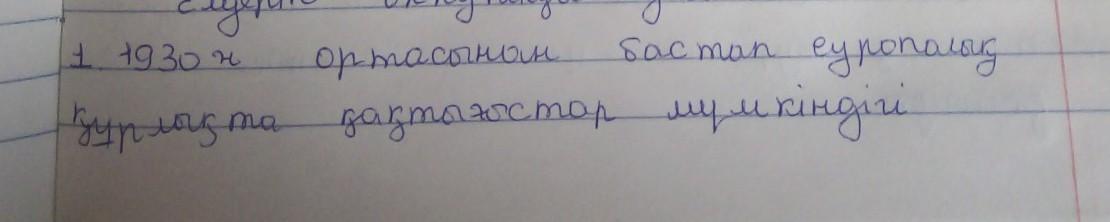 1. 1930 ж ортасынан бастап еуропалық
құрлықта қақтығыстар мүмкіндігі